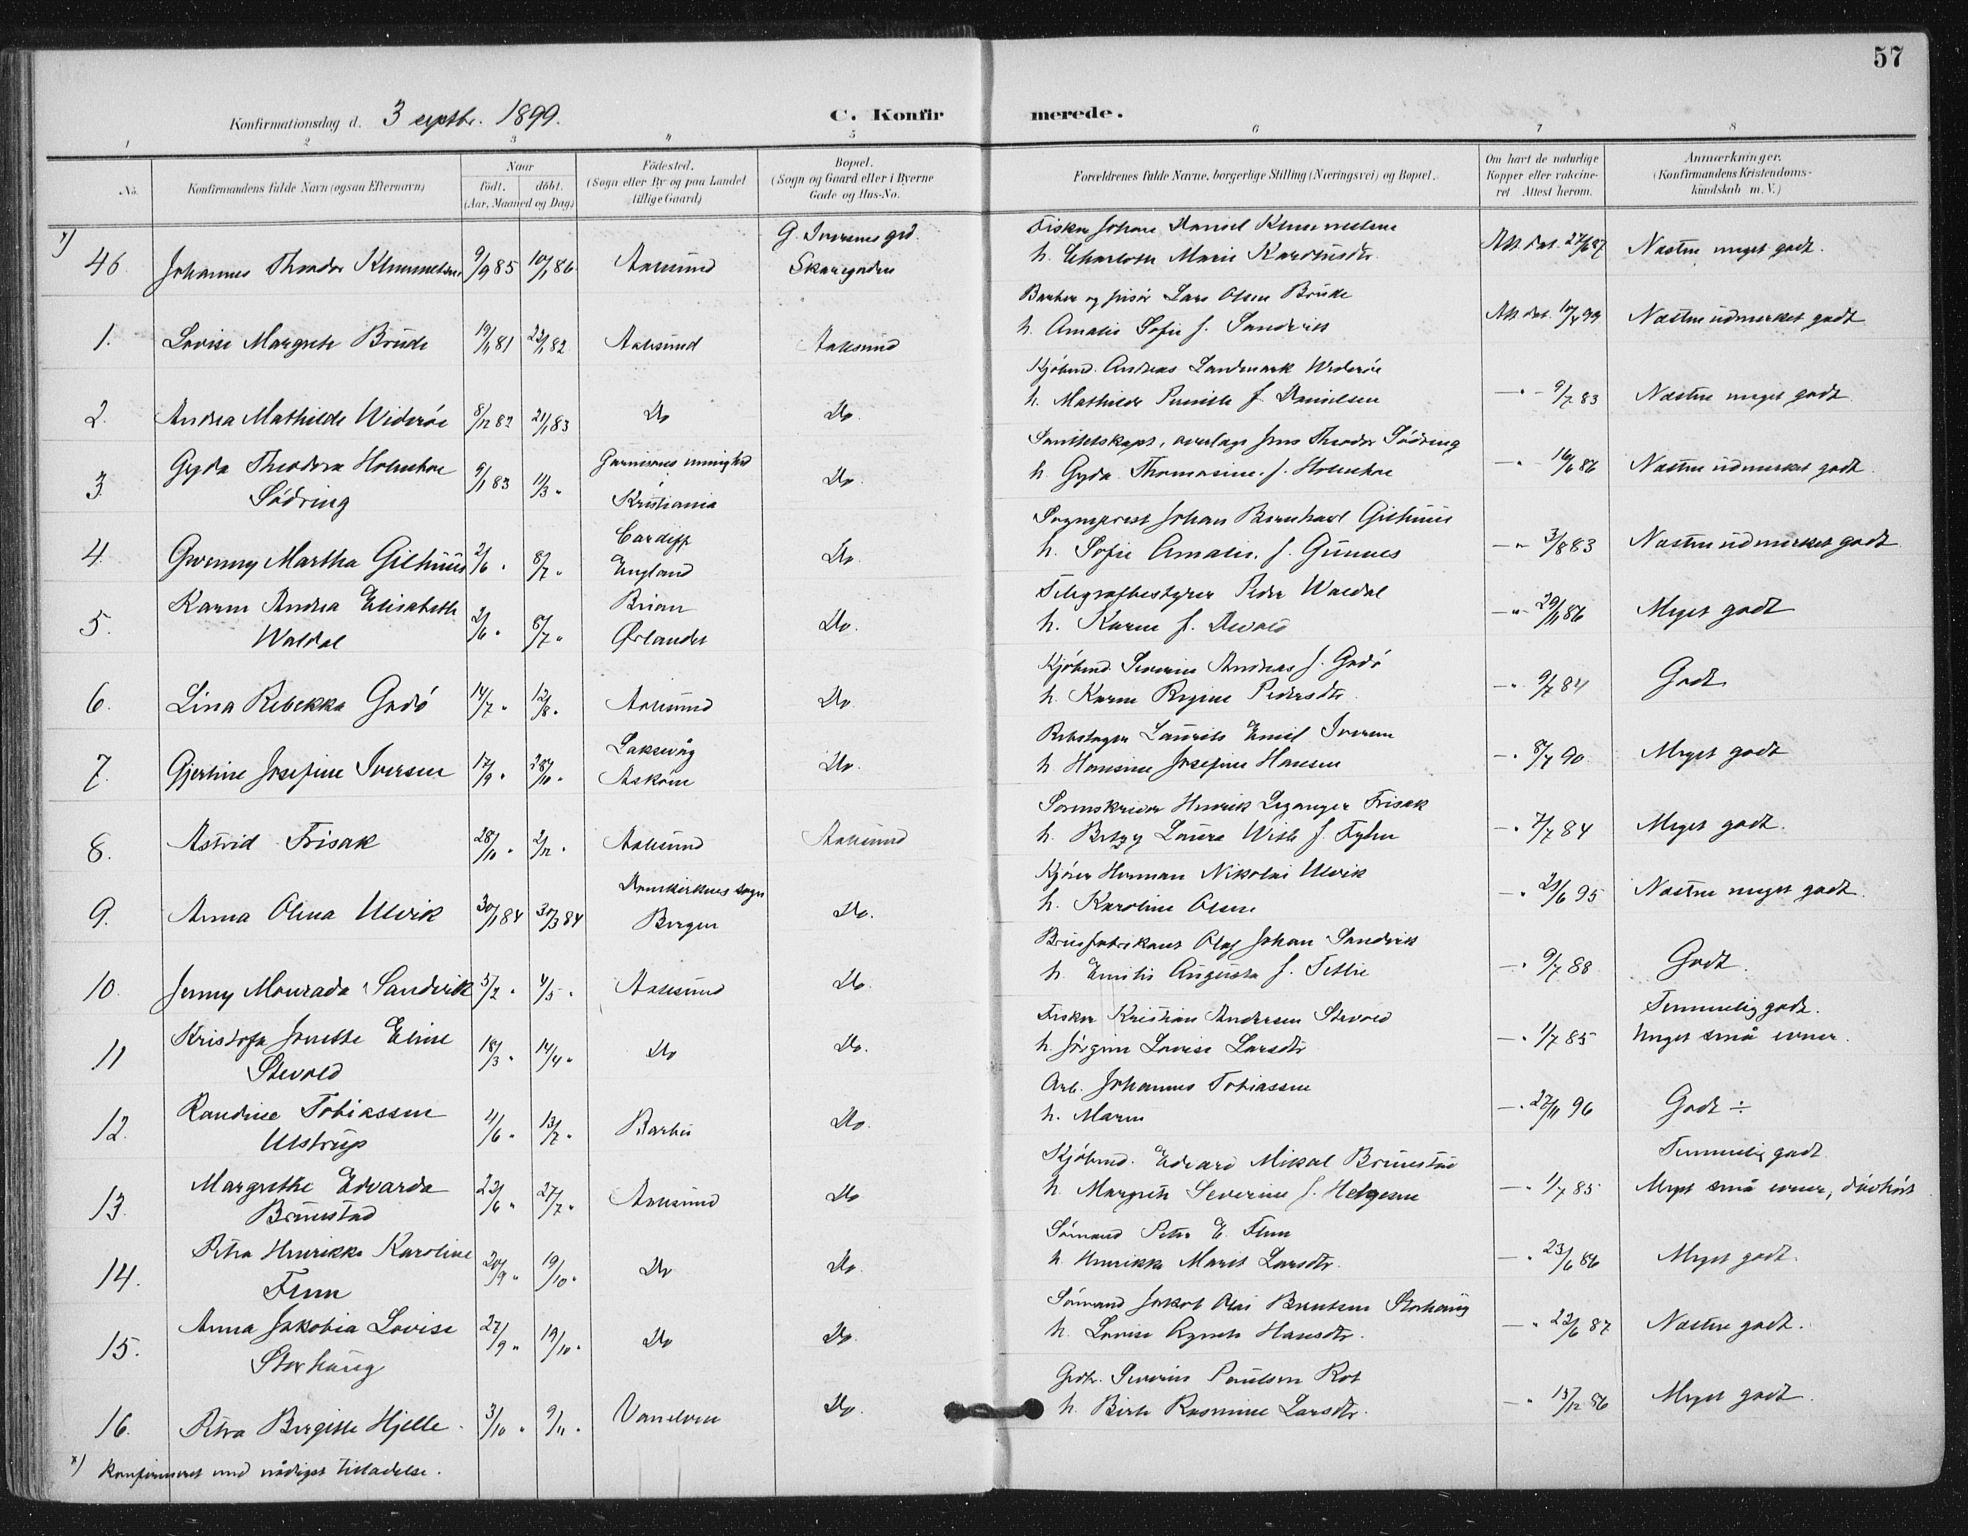 57
Konfirmationsdag d. 3 septbr. 1899.
C. Konfirmerede.
1 2 3 4 5 6 7 8
No.
Konfirmandens fulde Navn (ogsaa Efternavn)
Naar
født. døbt.
(Aar, Maaned og Dag)
Födested.
(Sogn eller By og paa Landet
tillige Gaard)
Bopæl.
(Sogn og Gaard eller i Byerne
Gade og Hus-No.
Forældrenes fulde Navne, borgerlige Stilling (Næringsvei) og Bopæl.
Om havt de naturlige
Kopper eller vakcine-
ret Attest herom.
Anmærkninger.
(Konfirmandens Kristendoms-
kundskab m. V.)
x)
46. Johannes Theodor Klemmetsen 9/9 85 10/1 86 Aalesund
G. Iversens grd.
Skaregaden
Fisker Johan Daniel Klemmetsen
h. Charlotte Marie Karolusdtr.
Att. dat. 27/6 87 Næsten meget godt.
1. Lovise Margrete Brude 19/11 81 22/1 82 Aalesund Aalesund
Barber og frisør Lars Olsen Brude
h. Amalie Sofie f. Sandvik
Att. dat. 10/4 99 Næsten udmerket godt
2. Andrea Mathilde Widerøe 8/12 82 21/1 83 Do Do.
Kjøbmd. Andreas Landmark Widerøe
h. Mathilde Pernille f. Danielsen
—"— 9/7 83 Næsten meget godt.
3. Gyda Theodora Holmboe
Sødring
9/1 83 11/3 "
Garnisons menighed
i
Kristiania
Do.
Sanitetskapt., overlæge Jens Theodor Sødring
h. Gyda Thomasine f. Holmboe
—" 16/6 86 Næsten udmerket godt.
4. Gwenny Martha Gilhuus 2/6 " 8/7 "
Cardiff
England
Do.
Sogneprest Johan Bernhard Gilhuus
h. Sofie Amalie f. Gunnes
—" 3/8 83 Næsten udmerket godt
5. Karen Andrea Elisabeth
Waldal
2/6 " 8/7 "
Brian
Ørlandet
Do.
Telegrafbestyrer Peder Waldal
h. Karen f. Devold
—" 29/11 86 Meget godt
6. Lina Rebekka Godø 14/7 " 12/8 " Aalesund Do.
Kjøbmd Severin Andreas J. Godø
h. Karen Regine Pedersdtr.
—" 9/7 84 Godt
7. Gjertine Josefine Iversen 17/9 " 28/10 "
Laksevåg
Askøen
Do.
Rebslager Laurits Emil Iversen
h. Hansine Josefine Hansen
—" 8/7 90 Meget godt
8. Astrid Frisak 28/10 " 2/12 " Aalesund Aalesund
Sorenskriver Henrik Leganger Frisak
h. Betzy Laura With f. Fyhn
—" 7/7 84 Meget godt.
9. Anna Olina Ulvik 30/1 84 30/3 84
Domkirkens sogn
Bergen
Do.
Kjører Herman Nikolai Ulvik
h. Karoline Olsen
—" 25/6 95 Næsten meget godt.
10. Jenny Monrada Sandvik 5/2 " 4/5 " Aalesund Do.
Brusfabrikant Olaf Johan Sandvik
h. Emilie Augusta f. Tellie
—" 9/7 88 Godt.
11 Kristofa Jonette Eline
Stevold
18/3 " 14/4 " Do Do.
Fisker Kristian Andersen Stevold
h. Jørgine Lovise Larsdtr
—" 1/7 85
Temmelig godt.
Meget små evner.
12. Randine Tobiassen
Ulstrup
4/6 " 13/7 " Barbu Do.
Arb. Johannes Tobiassen
h. Maren
—" 27/11 96 Godt ÷
13. Margrethe Edvarda
Brunstad
22/6 " 27/7 " Aalesund Do
Kjøbmd. Edvard Mikal Brunstad
h. Margrete Severine f. Helgesen
—" 1/7 85
Temmelig godt
Meget små evner, døvhørt
14. Petra Henrikke Karoline
Flem
20/9 " 19/10 " Do Do.
Sømand Peter E. Flem
h. Henrikke Marit Larsdtr.
—" 23/6 86 Meget godt.
15. Anna Jakobia Lovise
Storhaug
27/9 " 19/10 " Do Do.
Sømand Jakob Olai Berntsen Storhaug
h. Lovise Agnete Hansdtr.
—" 22/6 87 Næsten godt.
16. Petra Birgitte Hjelle 3/10 " 9/11 " Vanelven Do.
Grdbr. Severin Paulsen Rot
h. Birte Rasmine Larsdtr.
—" 15/12 86 Meget godt.
x) konfirmeret med nådigst tilladelse.